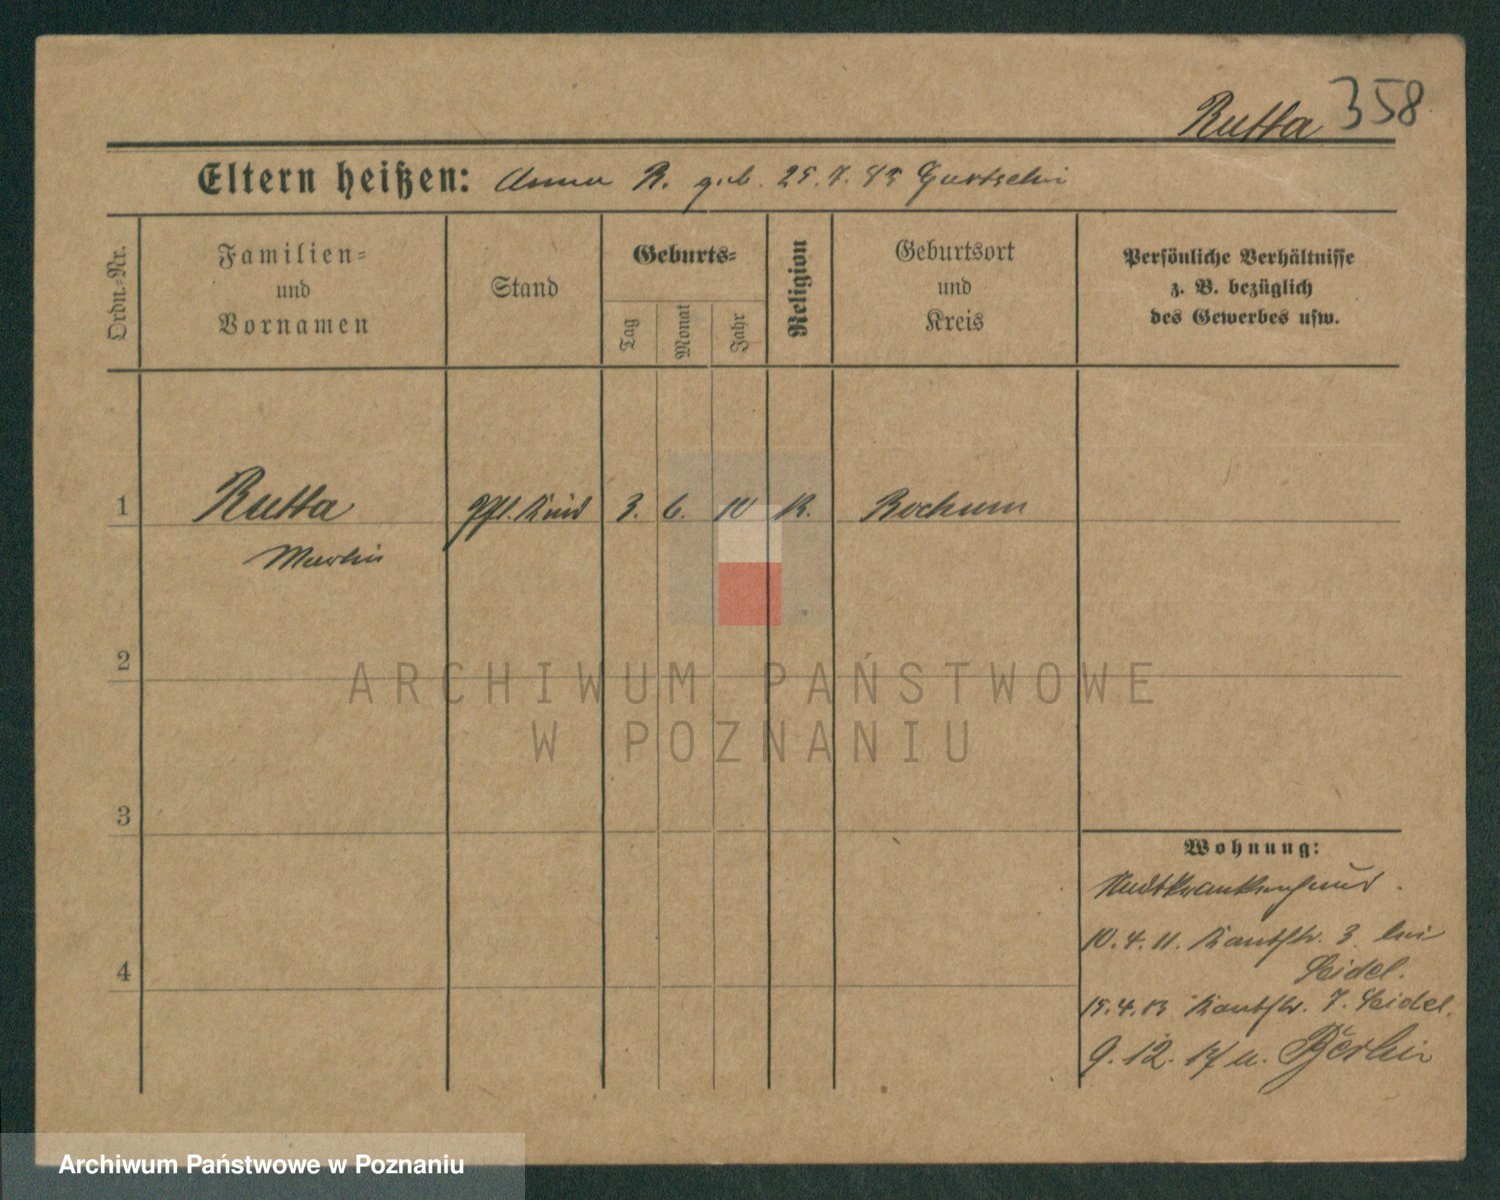 Rutta 358
Eltern heißen: Anna R. geb. 25. 7.
Ordn.-Nr.
Familien-
und
Vornamen
Stand
Geburts-
Tag
Monat
Jahr
Religion
Geburtsort
und
Kreis
Persönliche Verhältnisse
z. B. bezüglich
des Gewerbes usw.
1 Rutta Pfl. Kind 3. 6. 10 K. Bochum
Martin
2
3
4
Wohnung:
Stadtkrankenhaus.
10. 4. 11. Kantstr. 3 bei
Seidel.
15. 4. 13 Kantstr. 7. Seidel.
9. 12. 17 n. Berlin
ARCHIWUM PAŃSTWOWE
W POZNANIU
Archiwum Państwowe w Poznaniu